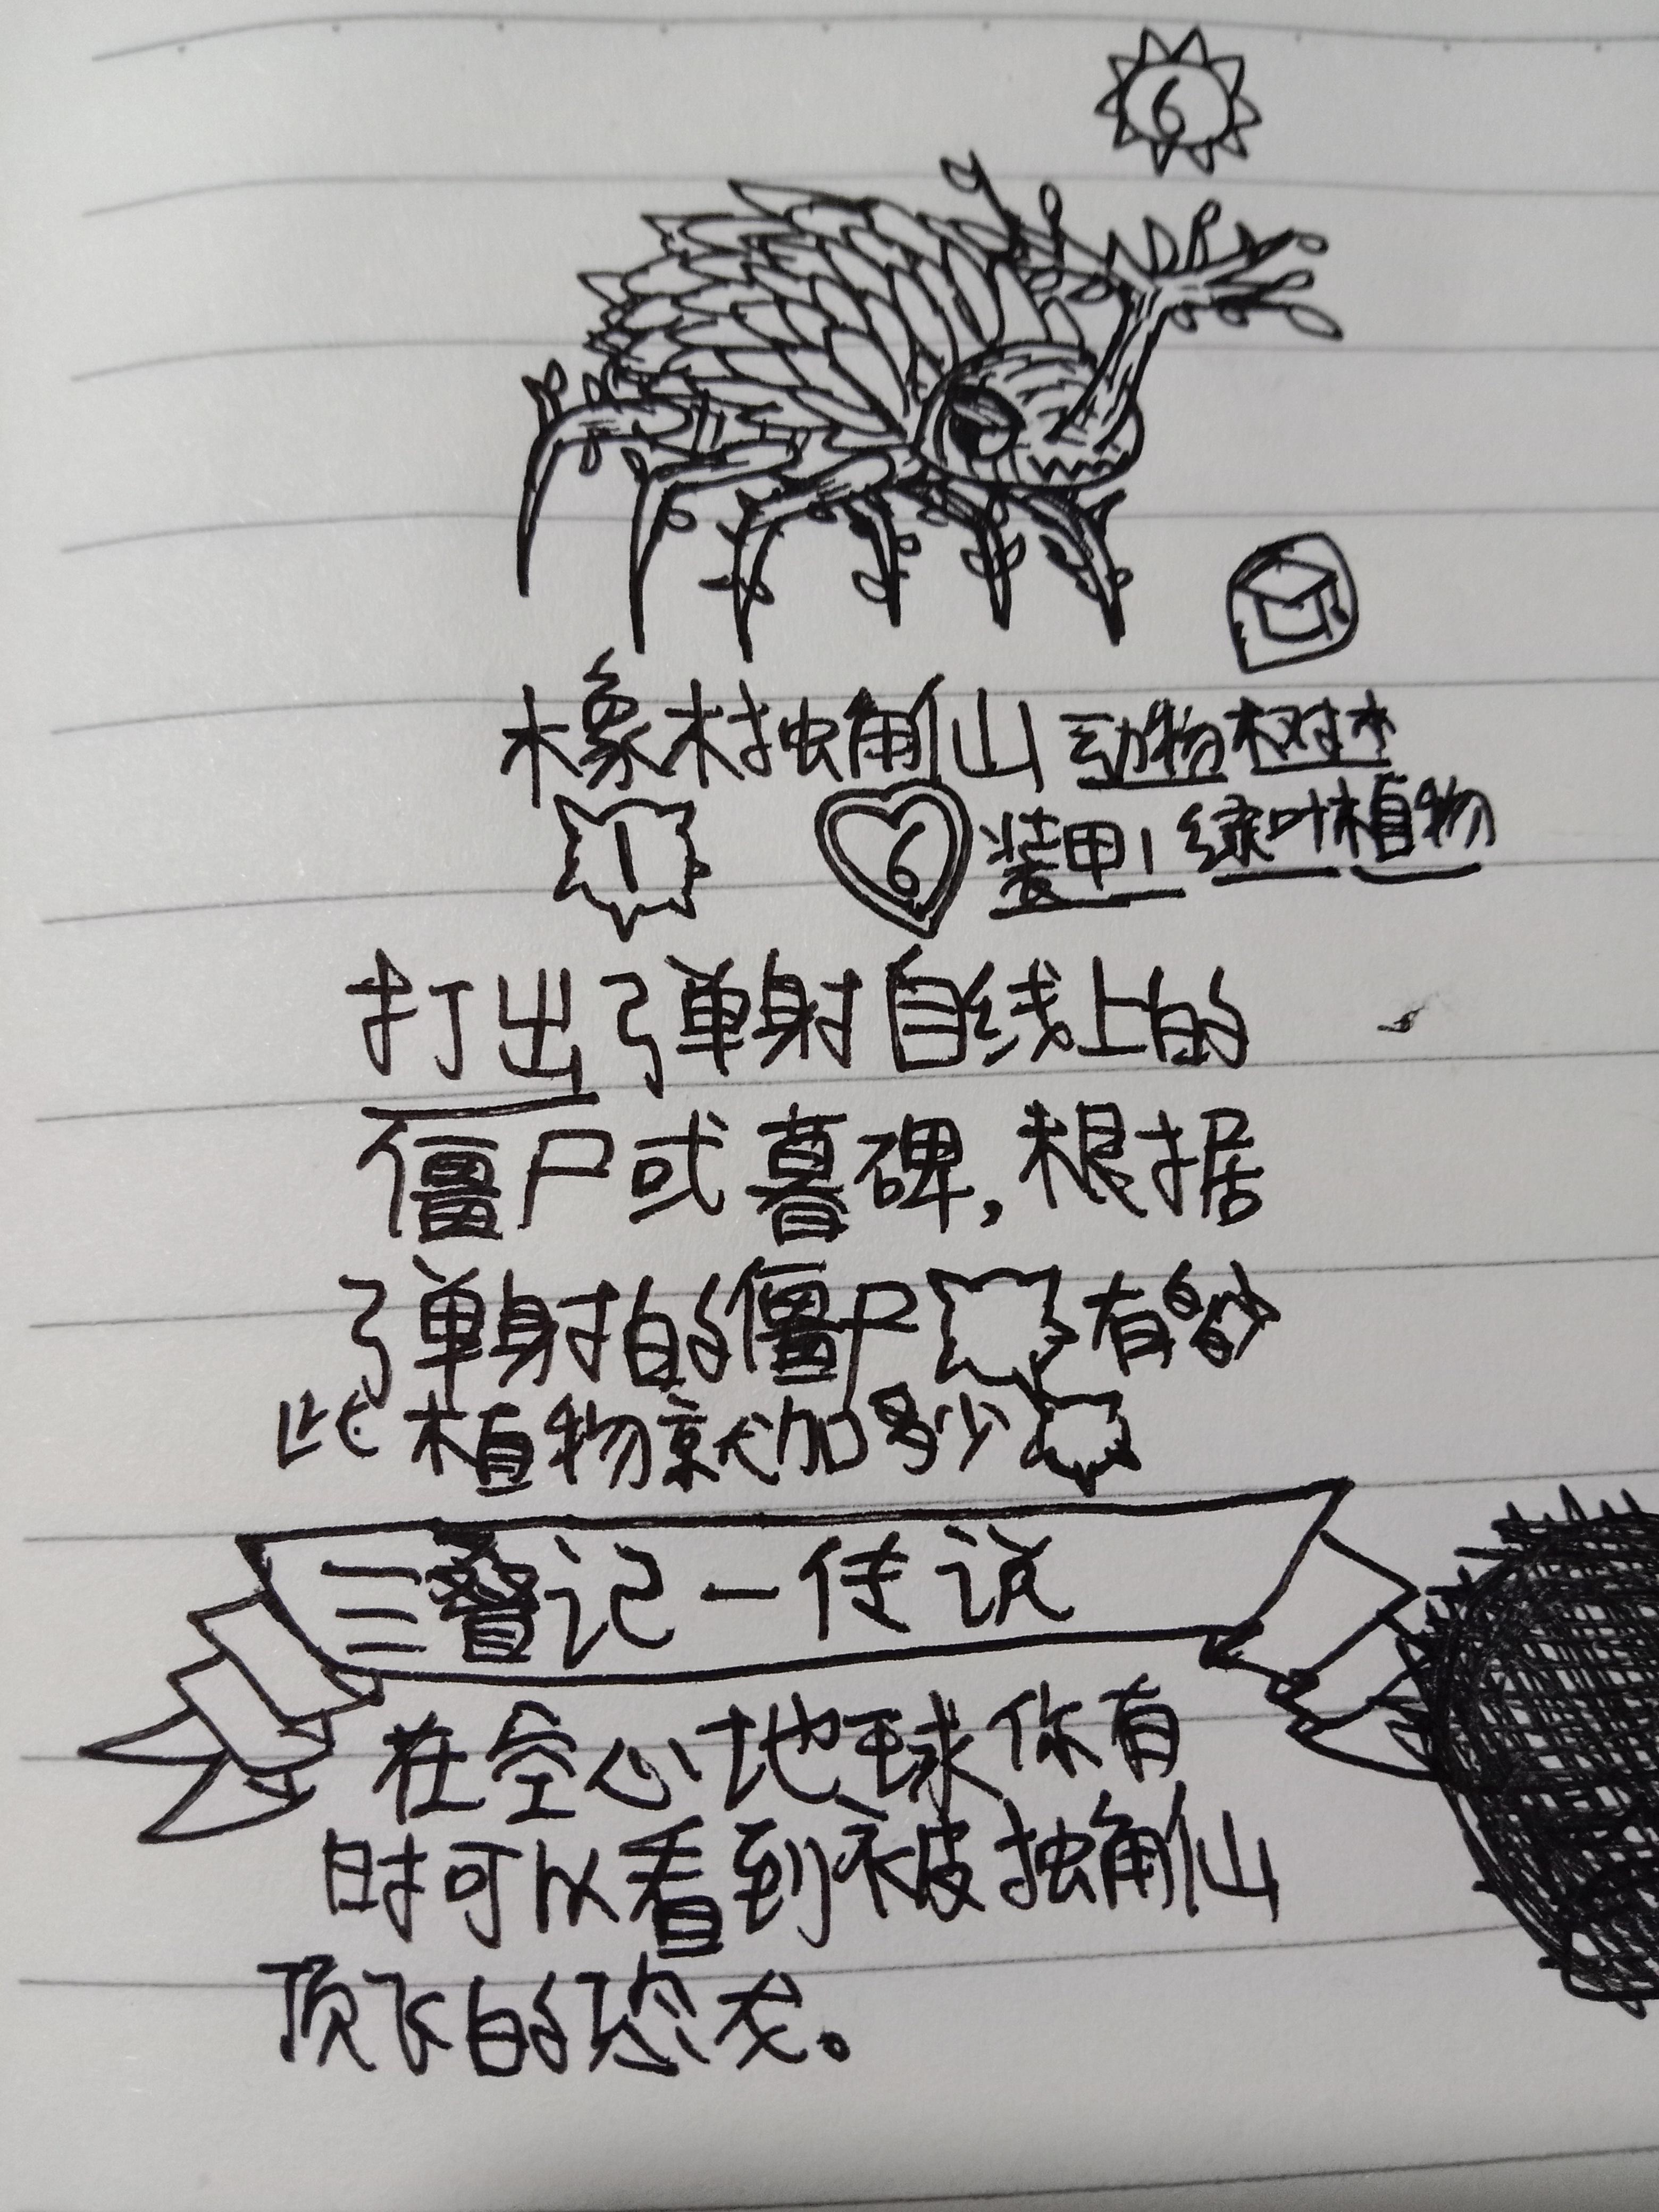 6
橡木独角仙 动物树木
1 6 装甲1 绿叶植物
打出弹射自线上的
僵尸或暮碑,根据
弹射的僵尸 有多少
此植物就加多少
三叠记一传说
在空心地球你有
时可以看到被独角仙
顶飞的恐龙。